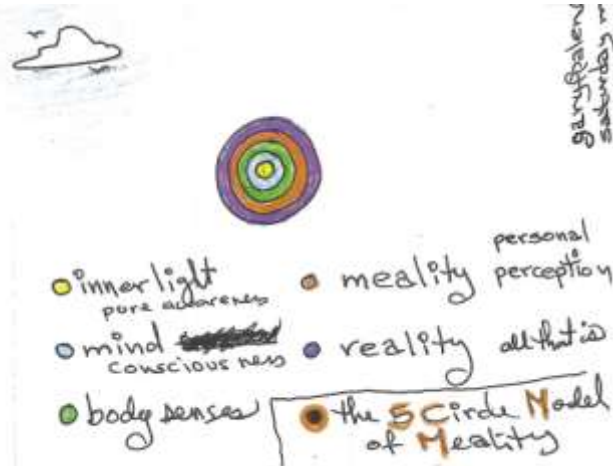 inner light
pure awareness
mind
consciousness
body senses
meality
personal
perception
reality
all that is
the 5 Circle Model
of Meality
saturday